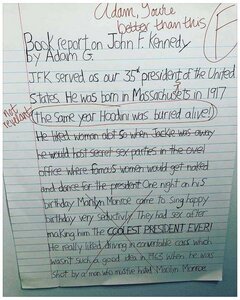 Adam, you're
better than this
F
Book report on John F. Kennedy
by Adam G.
JFK served as our 35th president of the United
States. He was born in Massachusets in 1917
not relevant
(the same year Hoodini was burried alive!)
He liked woman alot so when Jackie was away
he would host secret sex parties in the ovel
office where famous women would get naked
and dance for the president. One night on his
birthday Marilyn Monroe came to sing happy
birthday very seductivly. They had sex after
making him the COOLEST PRESIDENT EVER!
He really liked driving in convertable cars which
wasnt such a good idea in 1963 when he was
shot by a man who musthve hated Marilyn Monroe.